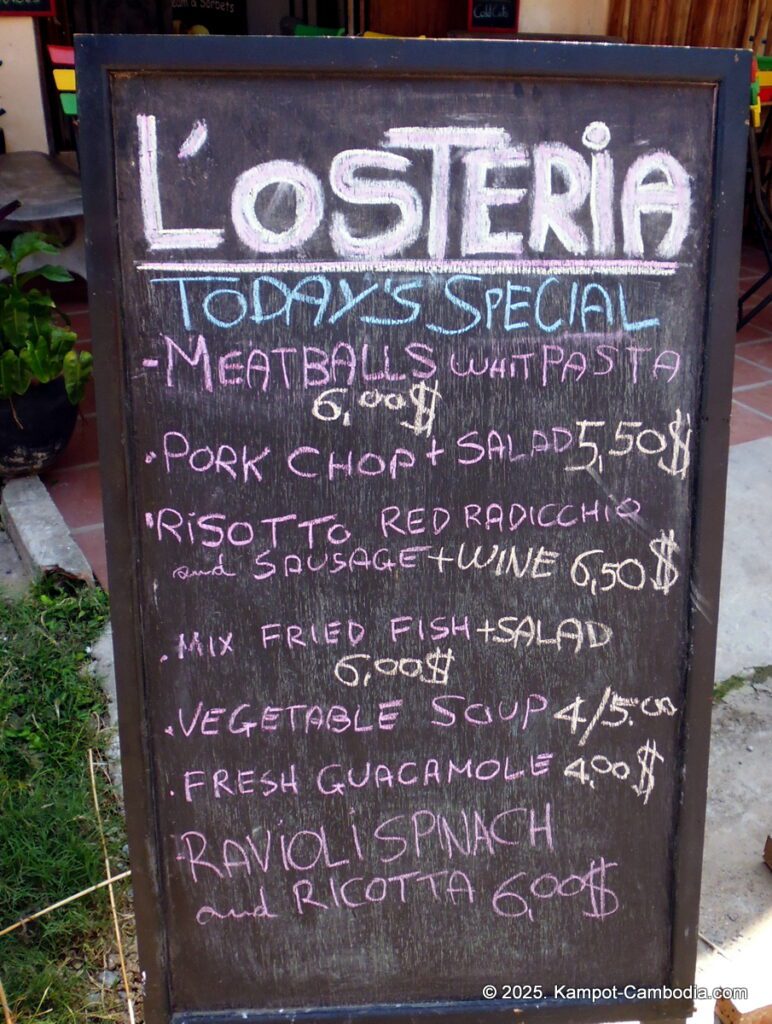 & Sorbets
Cold Cuts
L'OSTERIA
TODAY'S SPECIAL
- MEATBALLS WHIT PASTA
6,00$
. PORK CHOP + SALAD 5,50$
. RISOTTO RED RADICCHIO
and SAUSAGE + WINE 6,50$
. MIX FRIED FISH + SALAD
6,00$
. VEGETABLE SOUP 4/5.00
. FRESH GUACAMOLE 4,00$
- RAVIOLI SPINACH
and RICOTTA 6,00$
© 2025. Kampot-Cambodia.com